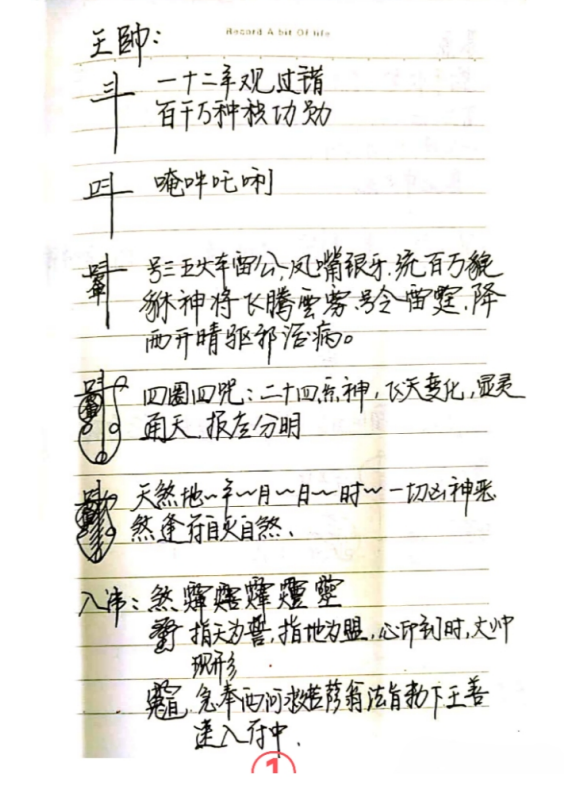 Record A bit Of life
王帥：
一十二年观过错
百千万种积功勋
唵吽吒唎
号三五火车雷公，凤嘴银牙，统百万貔
貅神将飞腾雲雾，号令雷霆，降
雨开晴驱邪治病。
四圈四咒：二十四炁神，飞天变化，显灵
通天，报应分明
天煞地〃年〃月〃日〃时〃一切凶神恶
煞逢符自灭自煞、
入讳：煞
指天为誓，指地为盟，心印到时，火帅
现形
急奉西河救苦萨翁法旨勅下王善
速入符中、
1